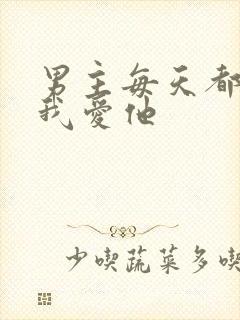 男主每天都
我愛他
少喫蔬菜多喫